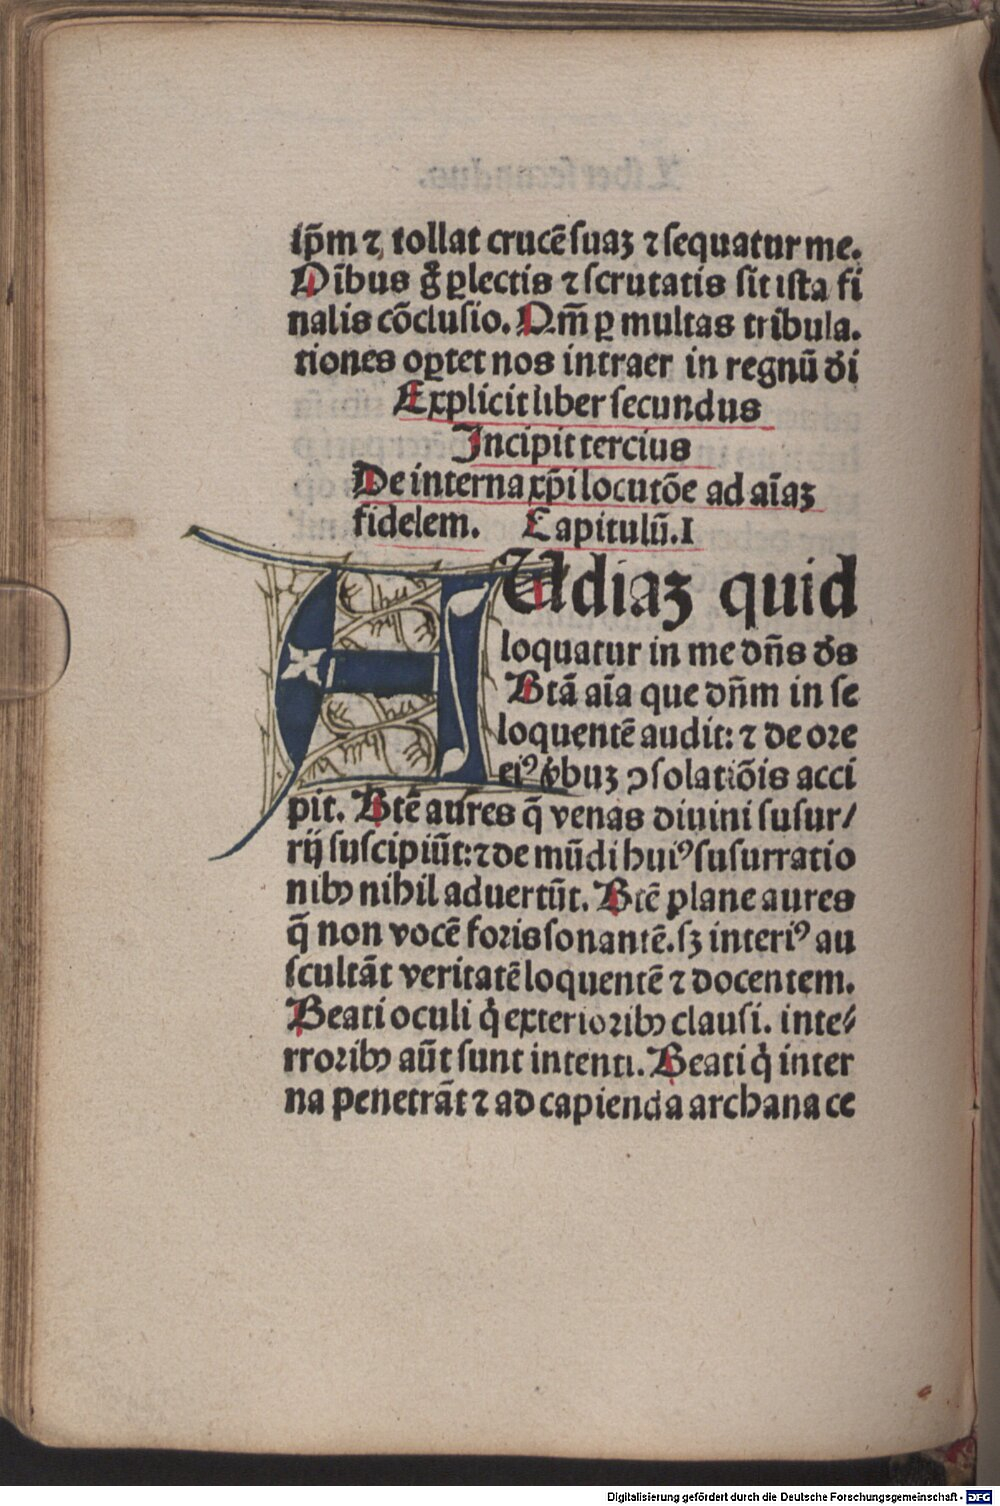 ip̄m ⁊ tollat crucē suaꝫ ⁊ sequatur me.
Oībus gͦ ꝑlectis ⁊ scrutatis sit ista fi
nalis cōclusio. Qm̄ ꝑ multas tribula.
tiones oꝑtet nos intraer in regnū di
Explicit liber secundus
Incipit tercius
De interna xp̄i locutōe ad aīaꝫ
fidelem. Capitulū.I
AUdiaꝫ quid
loquatur in me dn̄s ds
Btā aīa que dn̄m in se
loquentē audit: ⁊ de ore
eiꝰ v̾buꝫ ꝯsolatiōis acci
pit. Btē aures q̄ venas diuini susur/
rij suscipiūt: ⁊ de mūdi huiꝰ susurratio
nibꝫ nihil aduertūt. Btē plane aures
q̄ non vocē foris sonantē. sꝫ interiꝰ au
scultāt veritatē loquentē ⁊ docentem.
Beati oculi qͥ exterioribꝫ clausi. inte⸗
rioribꝫ aūt sunt intenti. Beati qͥ inter
na penetrāt ⁊ ad capienda archana ce
Digitalisierung gefördert durch die Deutsche Forschungsgemeinschaft - DFG